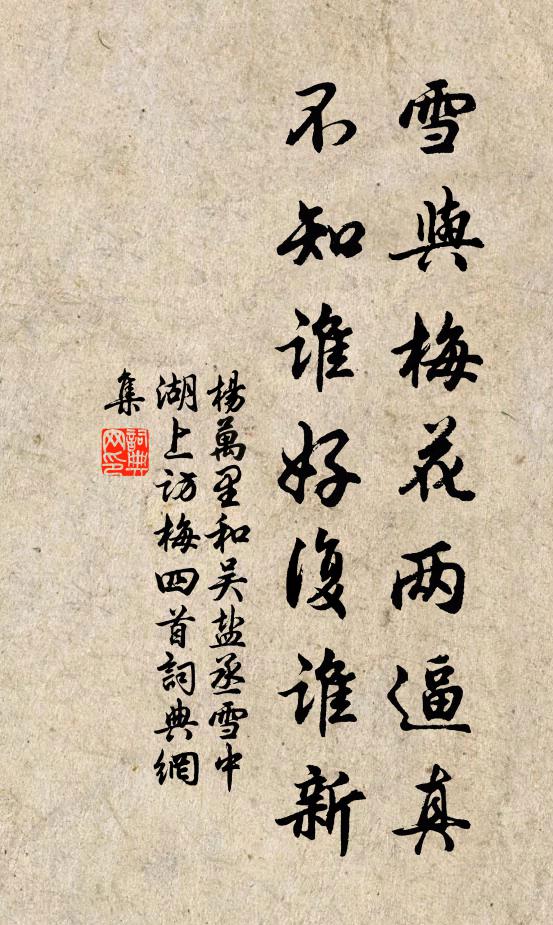 雪與梅花两逼真
不知谁好復谁新
楊萬里和吴盐丞雪中
湖上访梅四首詞典網
集
詞典网印